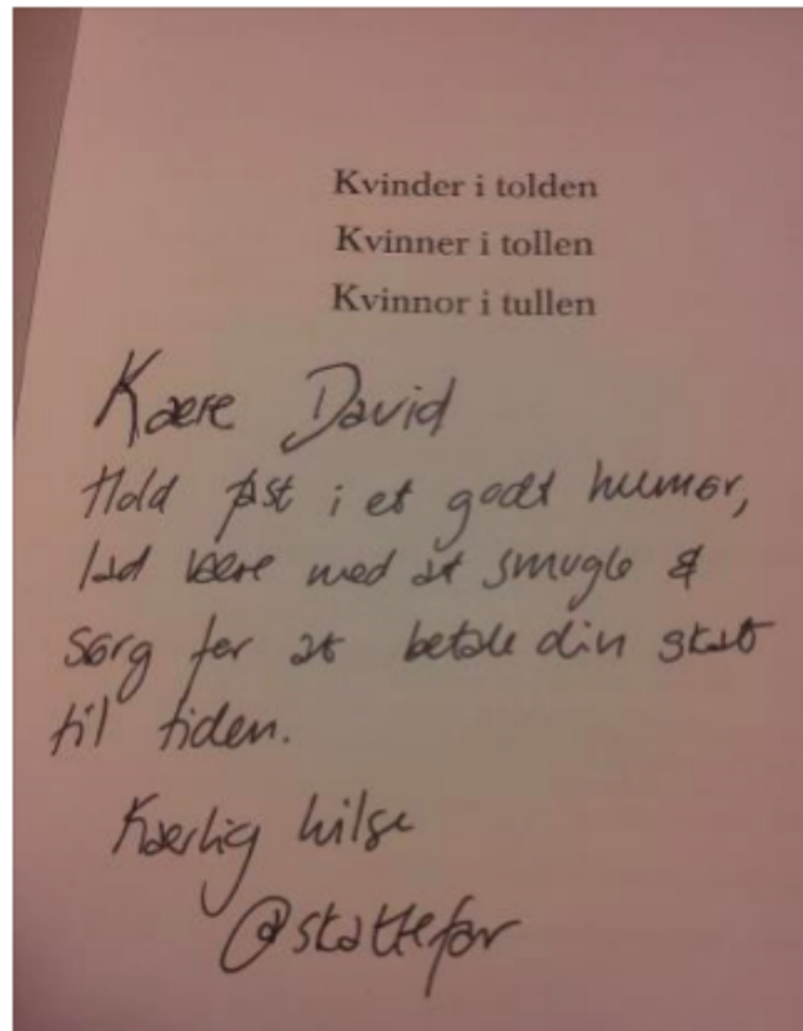 Kvinder i tolden
Kvinner i tollen
Kvinnor i tullen
Kære David
Hold fast i et godt humør,
lad være med at smugle &
sørg for at betale din skat
til tiden.
Kærlig hilse
@skattefar